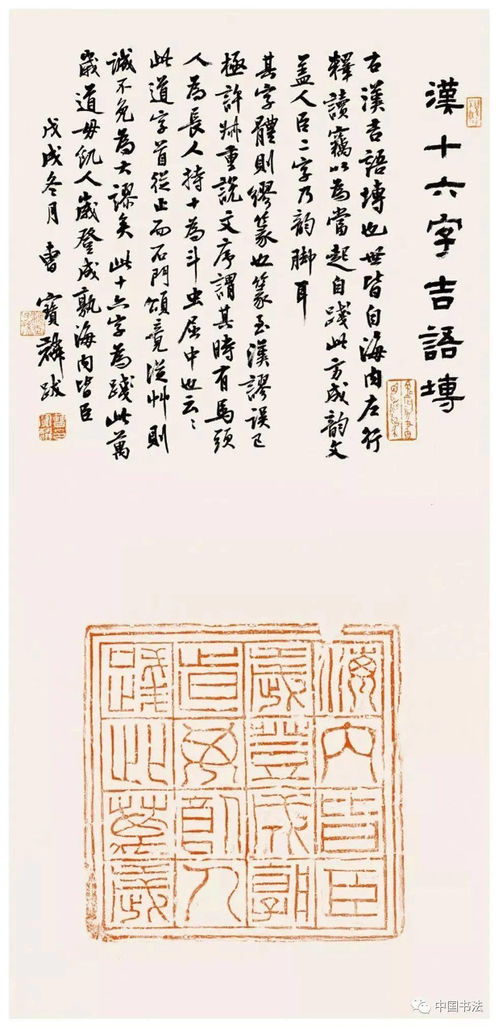 漢十六字吉語塼
古漢吉語塼也世皆自海内左行
釋讀竊以為當起自踐此方成韵文
盖人臣二字乃韵脚耳
其字體則繆篆也篆至漢謬误已
極許叔重説文序謂其時有馬頭
人為長人持十為斗虫屈中也云〻
此道字首從止而石門頌竟從艸則
誠不免為大謬矣此十六字為踐此萬
歲道毋飢人歲登成孰海内皆臣
戊戌冬月曹寶麟跋
海内皆臣
歲登成孰
道毋飢人
踐此萬歲
中国书法